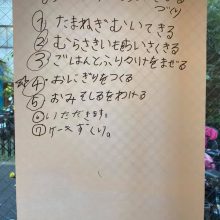 づくり
① たまねぎむいてきる
② むらさきいもあいさくきる
③ ごはんとふりかけをまぜる
④ おにぎりをつくる
⑤ おみそしるをわける
⑥ いただきます。
⑦ ケーキづくり。